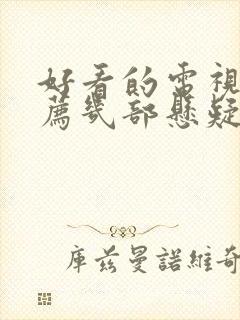 好看的電視
薦幾部懸疑
庫茲曼諾維奇